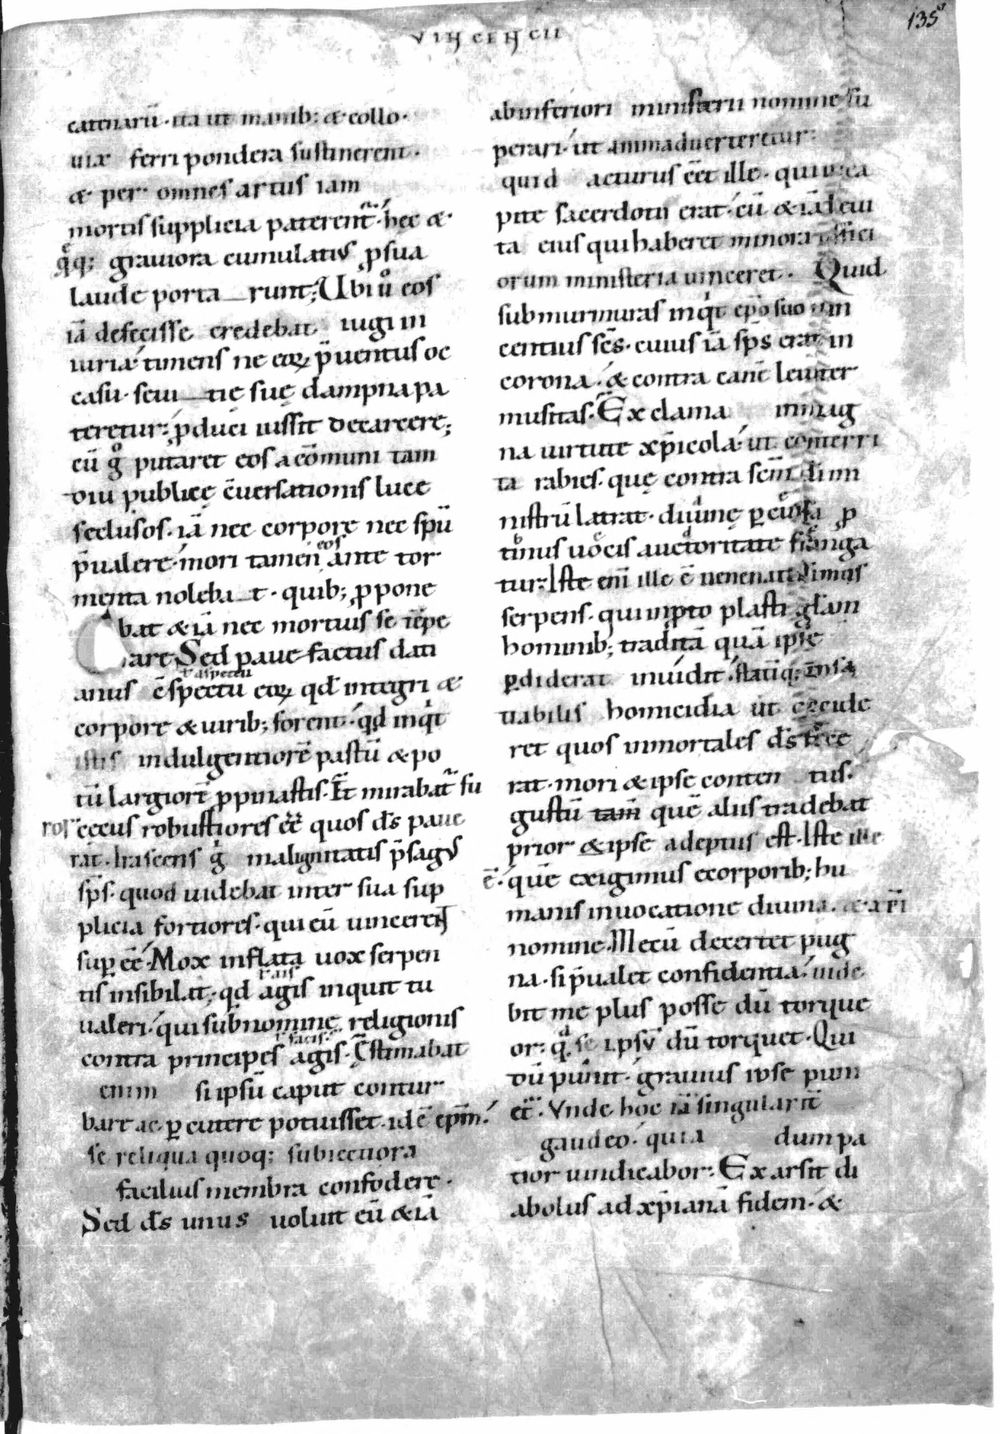 VINCENCII
135
catenarū · ita ut manib: & collo ·
uix ferri pondera sustinerent ·
& per omnes artus iam
mortis supplicia paterent᷑ · hęc &
q̊q; grauiora cumulatiꝰ ꝑ sua
laude porta runt; Ubi ů eos
iā defecisse credebat iugi in
iuria · timens ne eoꝝ p̄uentus oc
casu · seui tię suę dampna pa
teretur: ꝓduci iussit de carcere;
cū g̊ putaret eos a cōmuni tam
diu publicę cūersationis luce
seclusos · iā nec corpore nec spū
p̄ualere · mori tamen eos ante tor
menta noleba t · quib; ꝓpone
bat & iā nec mortuis se iēpe
rare Sed paue factus dati
anus ēspectu aspectu eoꝝ qd̄ integri &
corpore & uirib; forent · qd̄ inq̇t
istis indulgentiorē pastū & po
tū largiorē ꝓpinastis · Et mirabat᷑ fu
ror cęcus robustiores eē quos d̄s paue
rat · hascens g̊ malignitatis p̄sagꝰ
sp̄s · quod uidebat inter sua sup
plicia fortiores · qui eū uincerent
suꝑ eē · Mox inflata uox serpen
tis insibilat; qd̄ agis rais inquit tu
ualeri · qui sub nomine religionis
contra principes agis facis · Ęstimabat
enim si ipsū caput contur
bare ac ꝑcutere potuisset · id ē ep̄m ·
se reliqua quoq; subiectiora
facilius membra confodere ·
Sed d̄s unus uoluit eū & iā
ab inferiori ministerii nomine su
perari · ut animaduerteretur:
quid acturus eēt ille · qui in ca
pite sacerdotii erat · cū & iā leui
ta eius qui haberet minora offici
orum ministeria uinceret · Quid
submurmuras inq̇t ep̄o suo uin
centius sc̄s · cuius iā sp̄s erat in
corona · & contra canē leuiter
musitas · Exclama in mag
na uirtute xp̄icola · ut conterri
ta rabies · quę contra sc̄m dīm
nistrū latrat · diuinę ꝑ
tinus uocis auctoritate franga
tur: Iste enī ille ē uenenatissimus
serpens · qui inꝓto plasti gl̄am
hominib; traditā quā ipse
ꝑdiderat inuidit · statiq; insa
tiabilis homicidia ut
ret quos inmortales d̄s fece
rat · mori & ipse conten tus ·
gustū tam̄ quē aliis tradebat
prior & ipse adeptus est · Iste ille
ē · quē exigimus e corporib; hu
manis inuocatione diuina · & xp̄i
nomine · Mecū decertet pug
na · si p̄ualet confidentia · uide
bit me plus posse dū torque
or: q̇ se ipsū dū torquet · Qui
dū punit · grauius ipse puni
et᷑ · Vnde hoc iā singularit̄
gaudeo · quia dum pa
tior uindicabor: Exarsit di
abolus ad xp̄ianā fidem · &